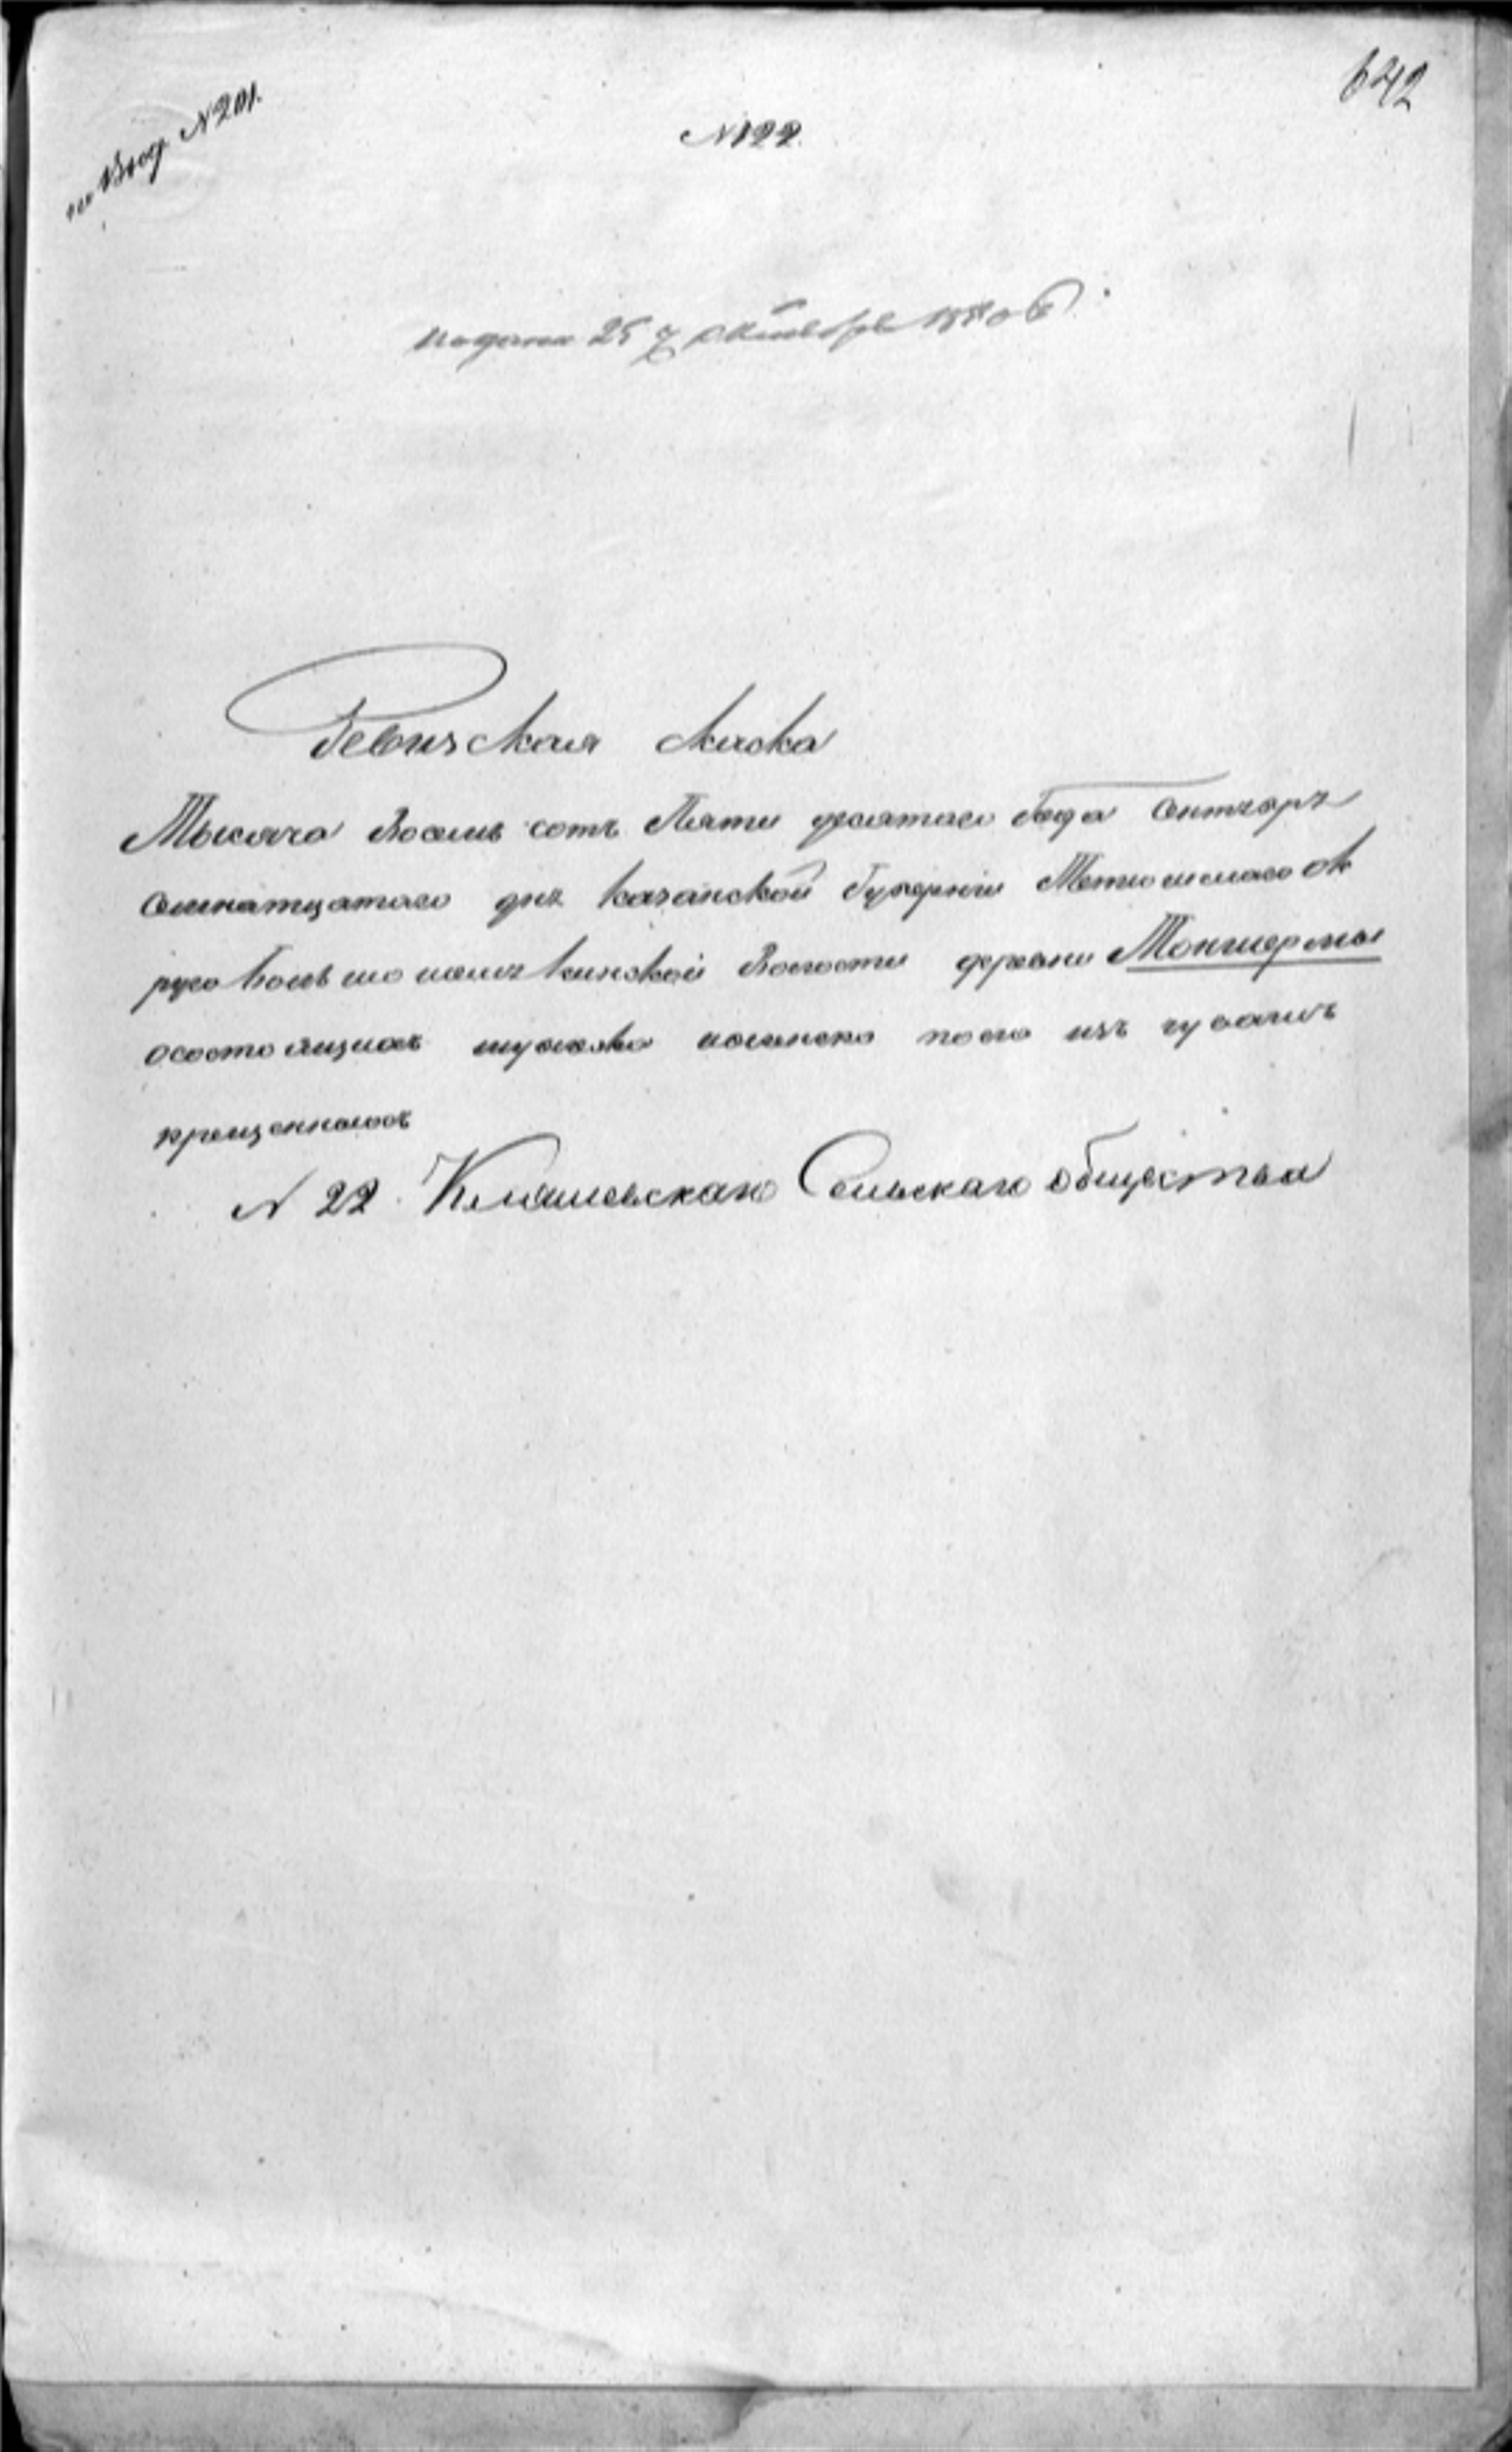 по Вход. N 201.
642
N 122.
подана 25 Октября 1850 г.
Ревизская Скаска
Тысяча Восемь сотъ Пяти десятаго Года Сентебря
семнатцатаго дня Казанской Губернiи Тетюшскаго ок
руга Больше Волости деревни Тоншермы
осостоящихъ мужеска иженска пола изъ чувашъ
крещенныхъ
N 22. Кляшевскаго Сельскаго общества